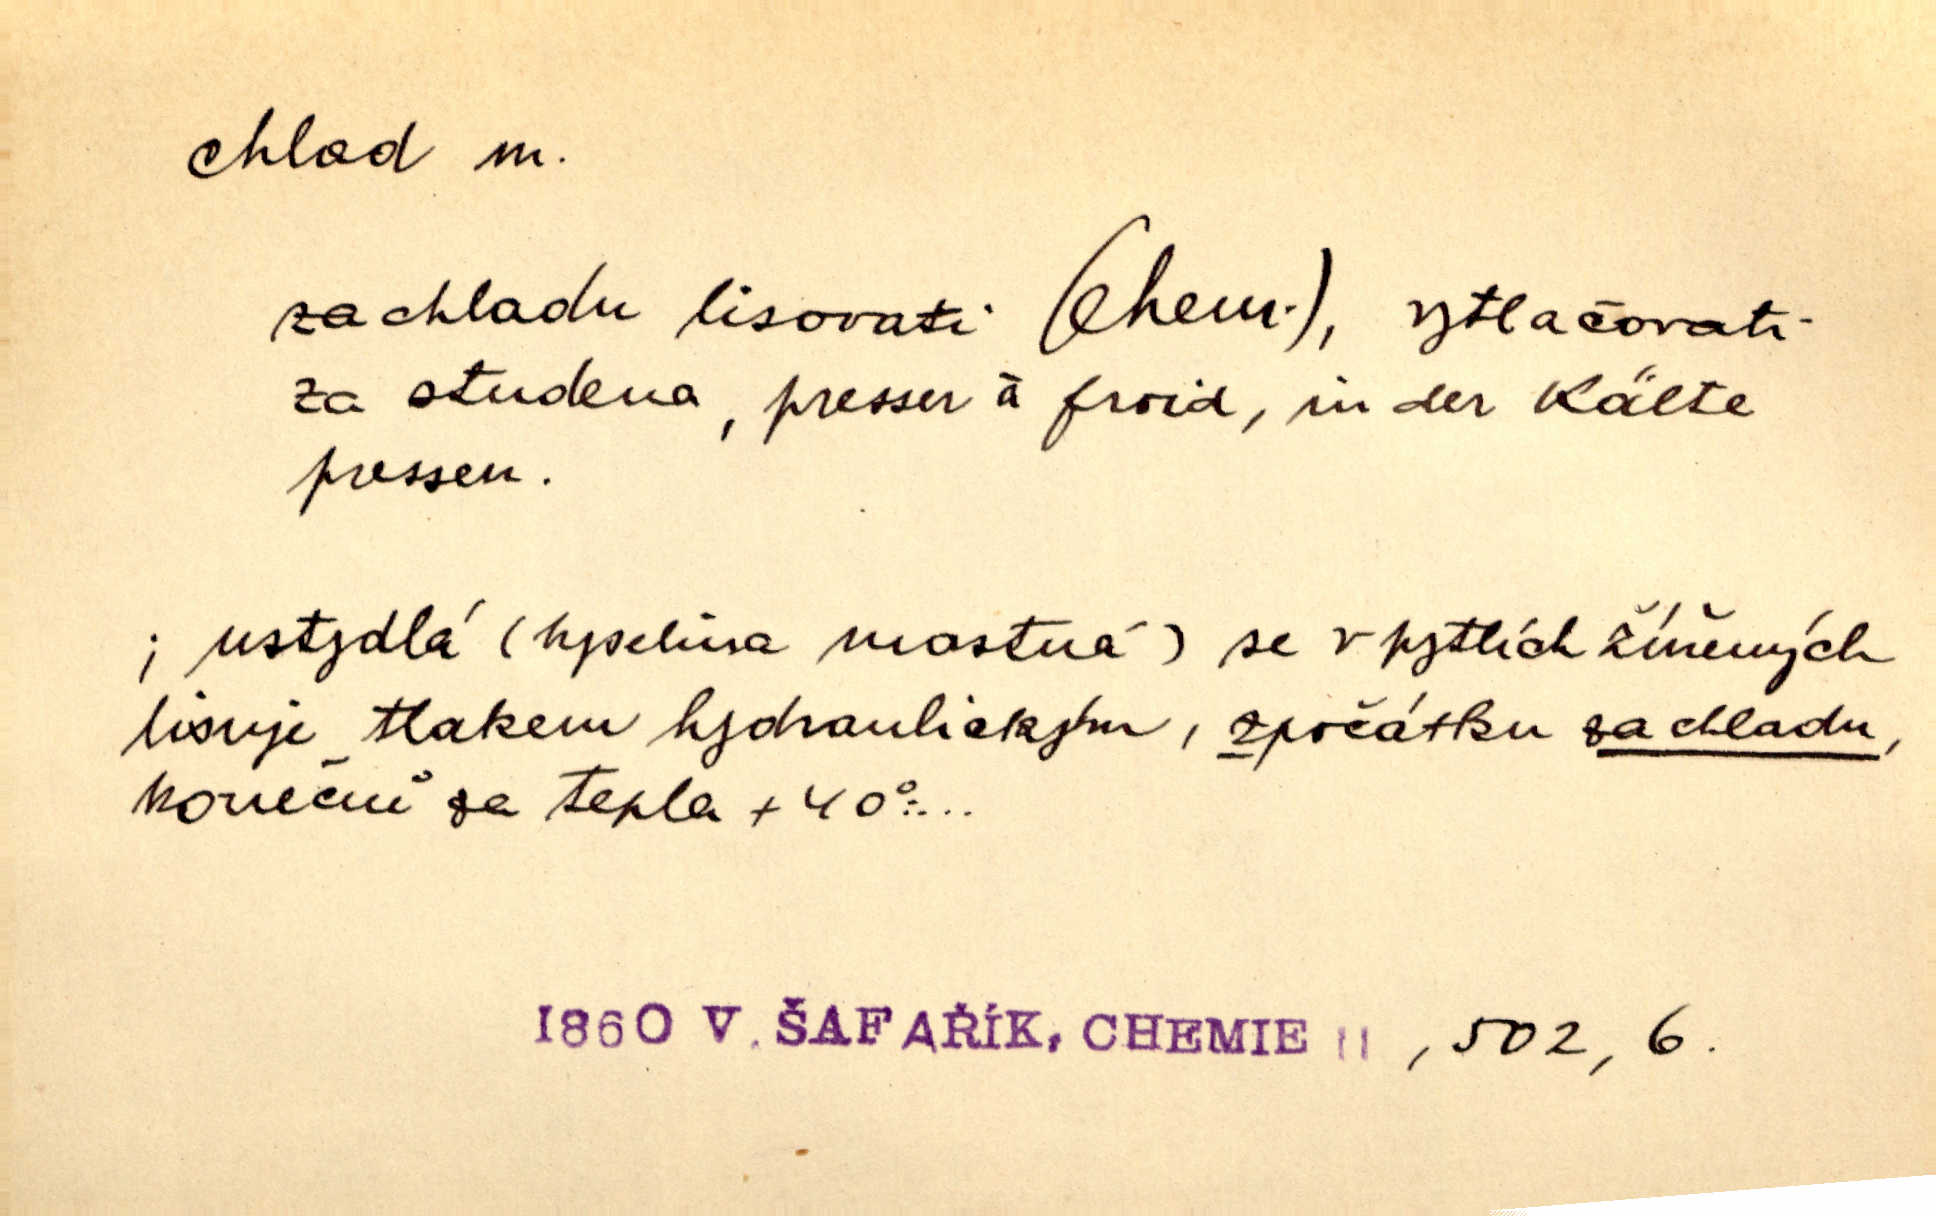 chlad m.
za chladu lisovati (chem.), vytlačovati
za studena, presser à froid, in der Kälte
pressen.
; ustydlá (kyselina mastná) se v pytlích žíněných
lisuje tlakem hydraulickým, zpočátku za chladu,
konečně za tepla + 40°...
1860 V. ŠAFAŘÍK, CHEMIE II, 502, 6.